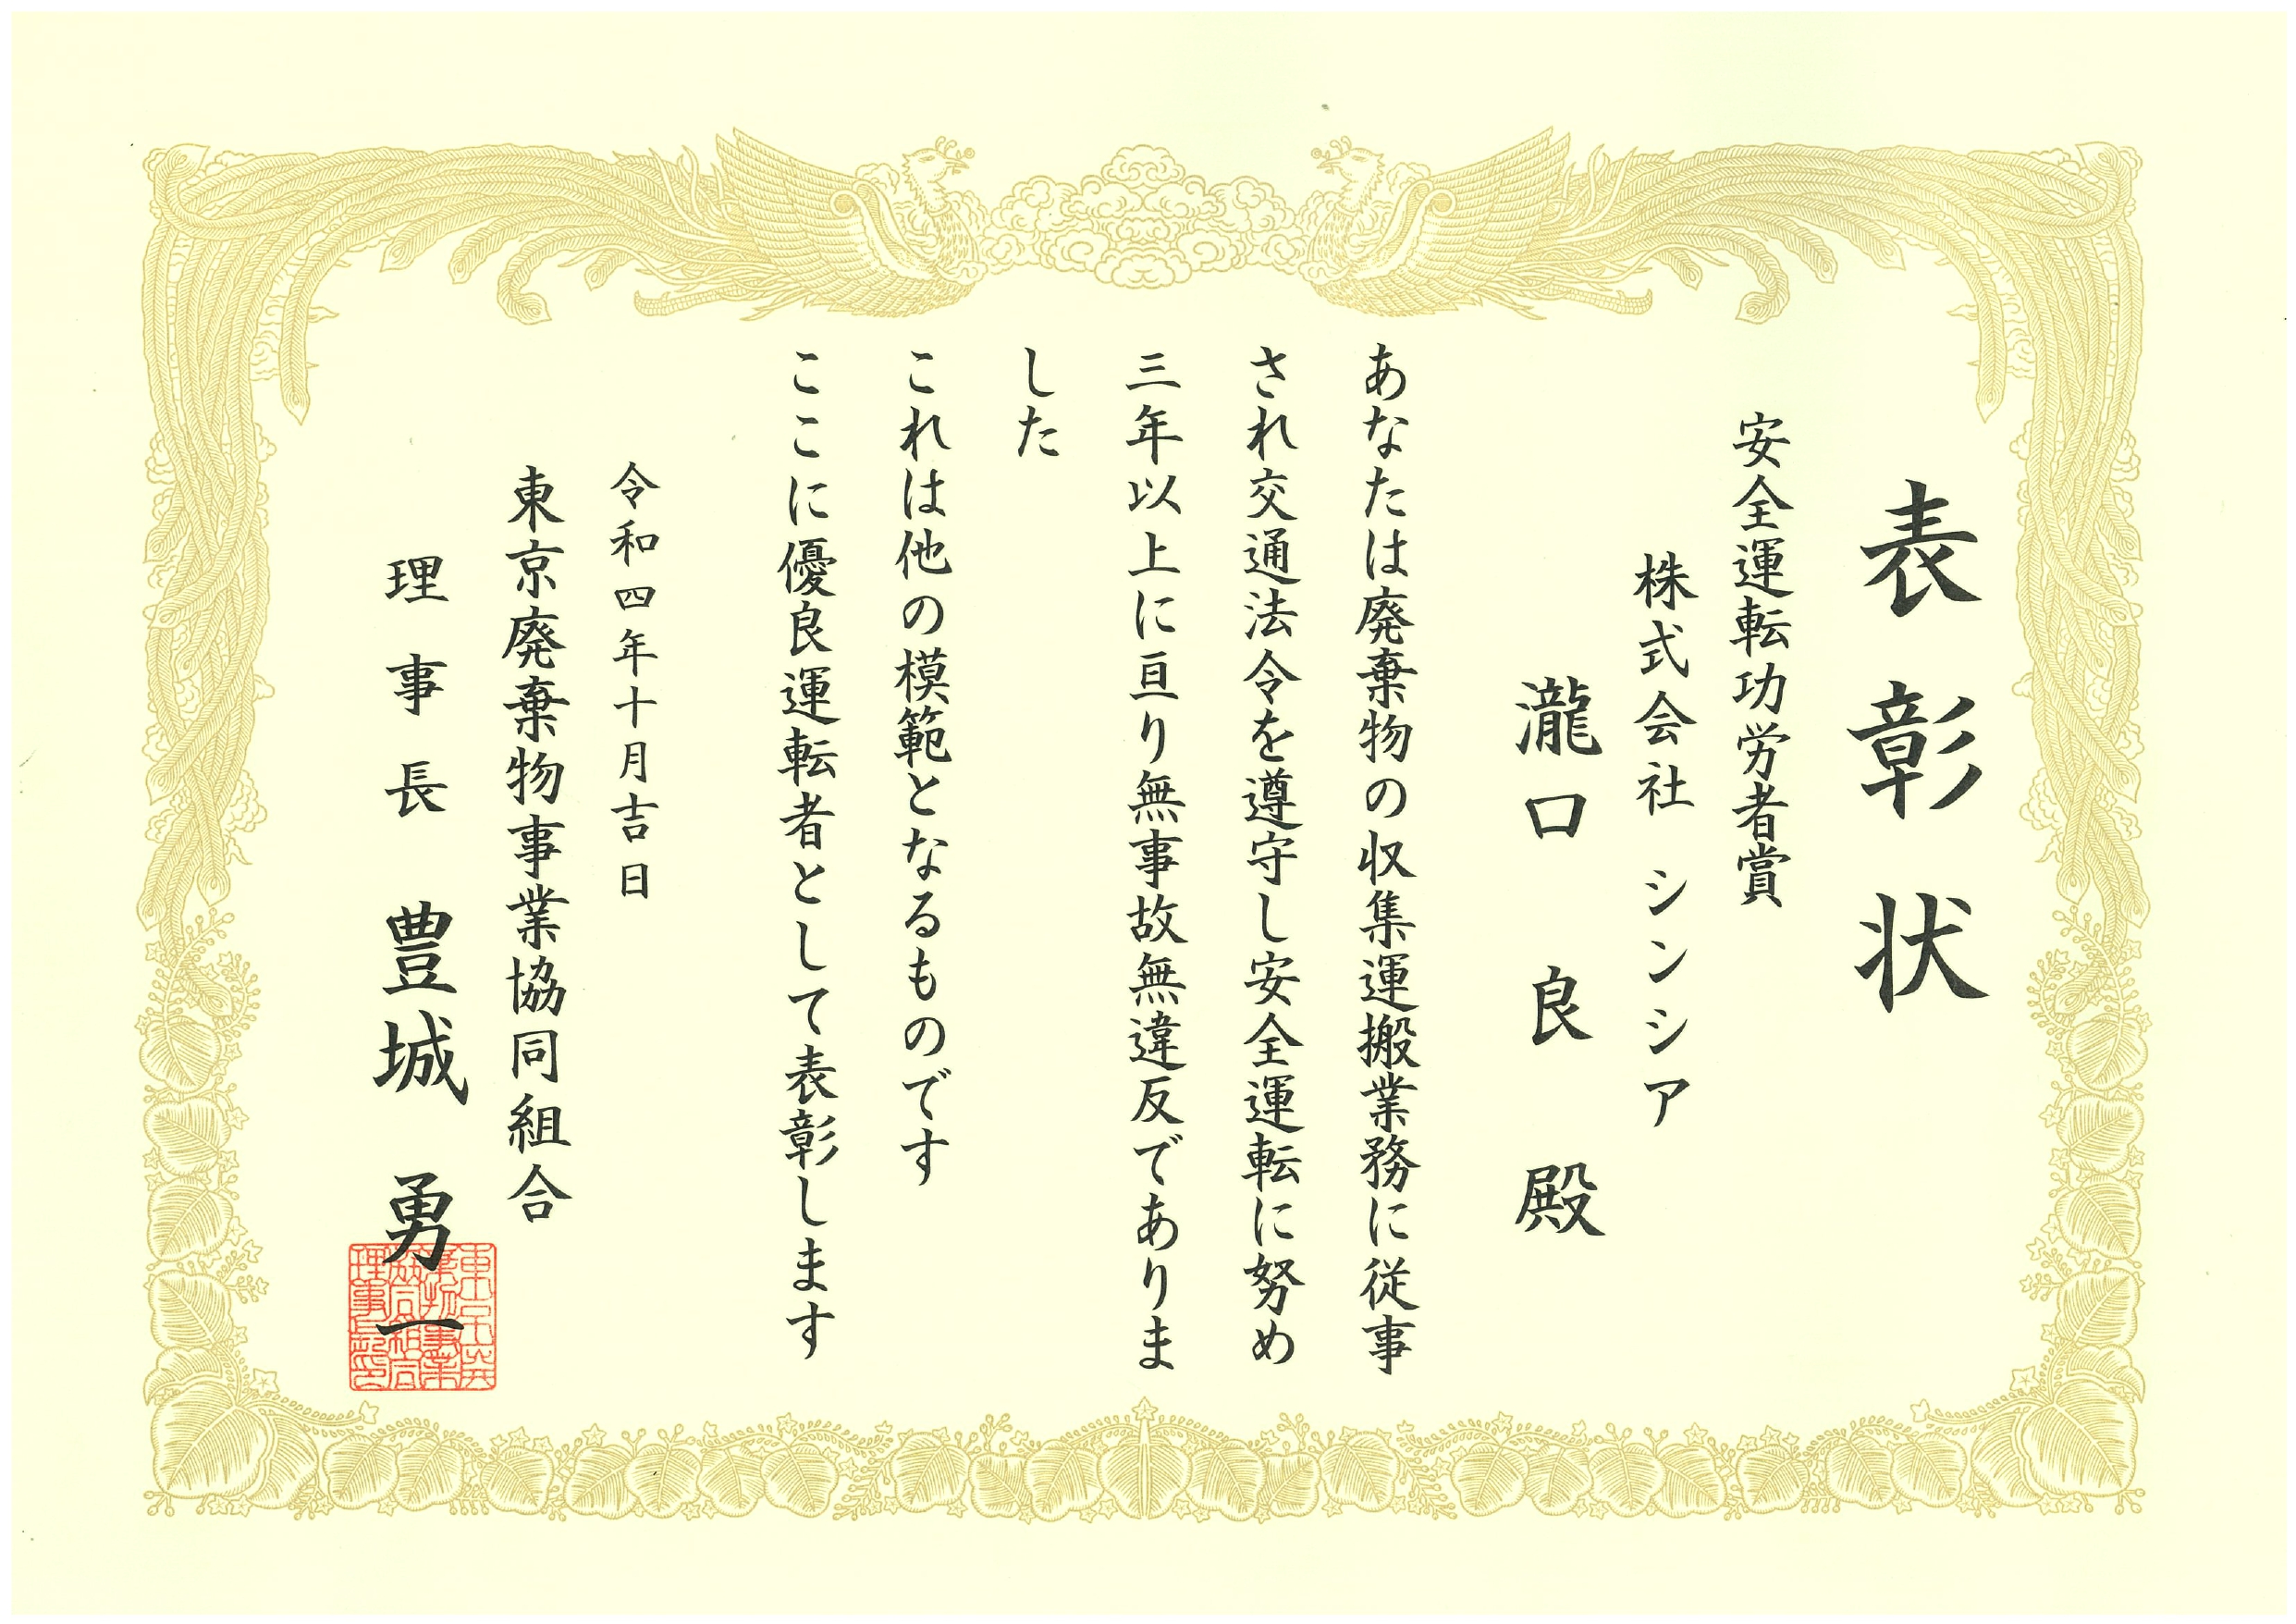 表彰状
安全運転功労者賞
株式会社 シンシア
瀧口 良 殿
あなたは廃棄物の収集運搬業務に従事
され交通法令を遵守し安全運転に努め
三年以上に亘り無事故無違反でありま
した
これは他の模範となるものです
ここに優良運転者として表彰します
令和四年十月吉日
東京廃棄物事業協同組合
理事長 豊城 勇一